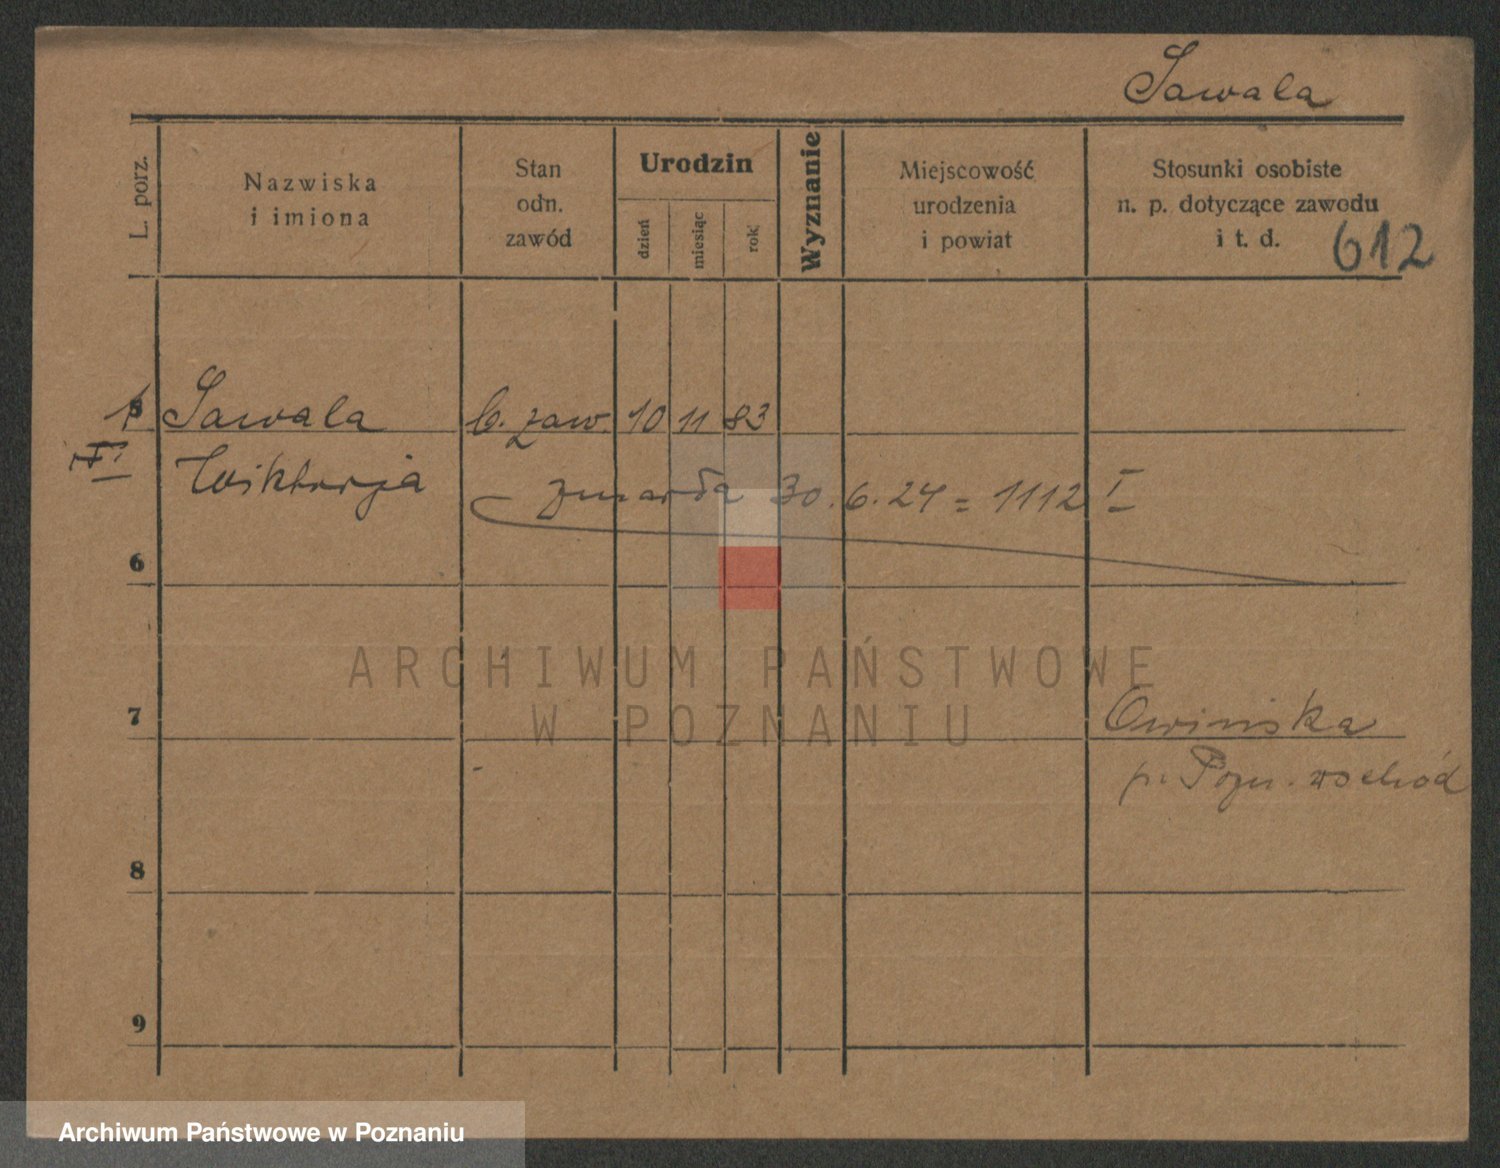 Sawala
L. porz.
Nazwiska
i imiona
Stan
odn.
zawód
Urodzin
dzień
miesiąc
rok
Wyznanie
Miejscowość
urodzenia
i powiat
Stosunki osobiste
n. p. dotyczące zawodu
i t. d.
612
5
Sawala b. zaw. 10 11 83
Wiktorja zmarła 30.6.24 = 1112 I
6
ARCHIWUM PAŃSTWOWE
W POZNANIU
7
Owińska
p. Pozn. wschód
8
9
Archiwum Państwowe w Poznaniu